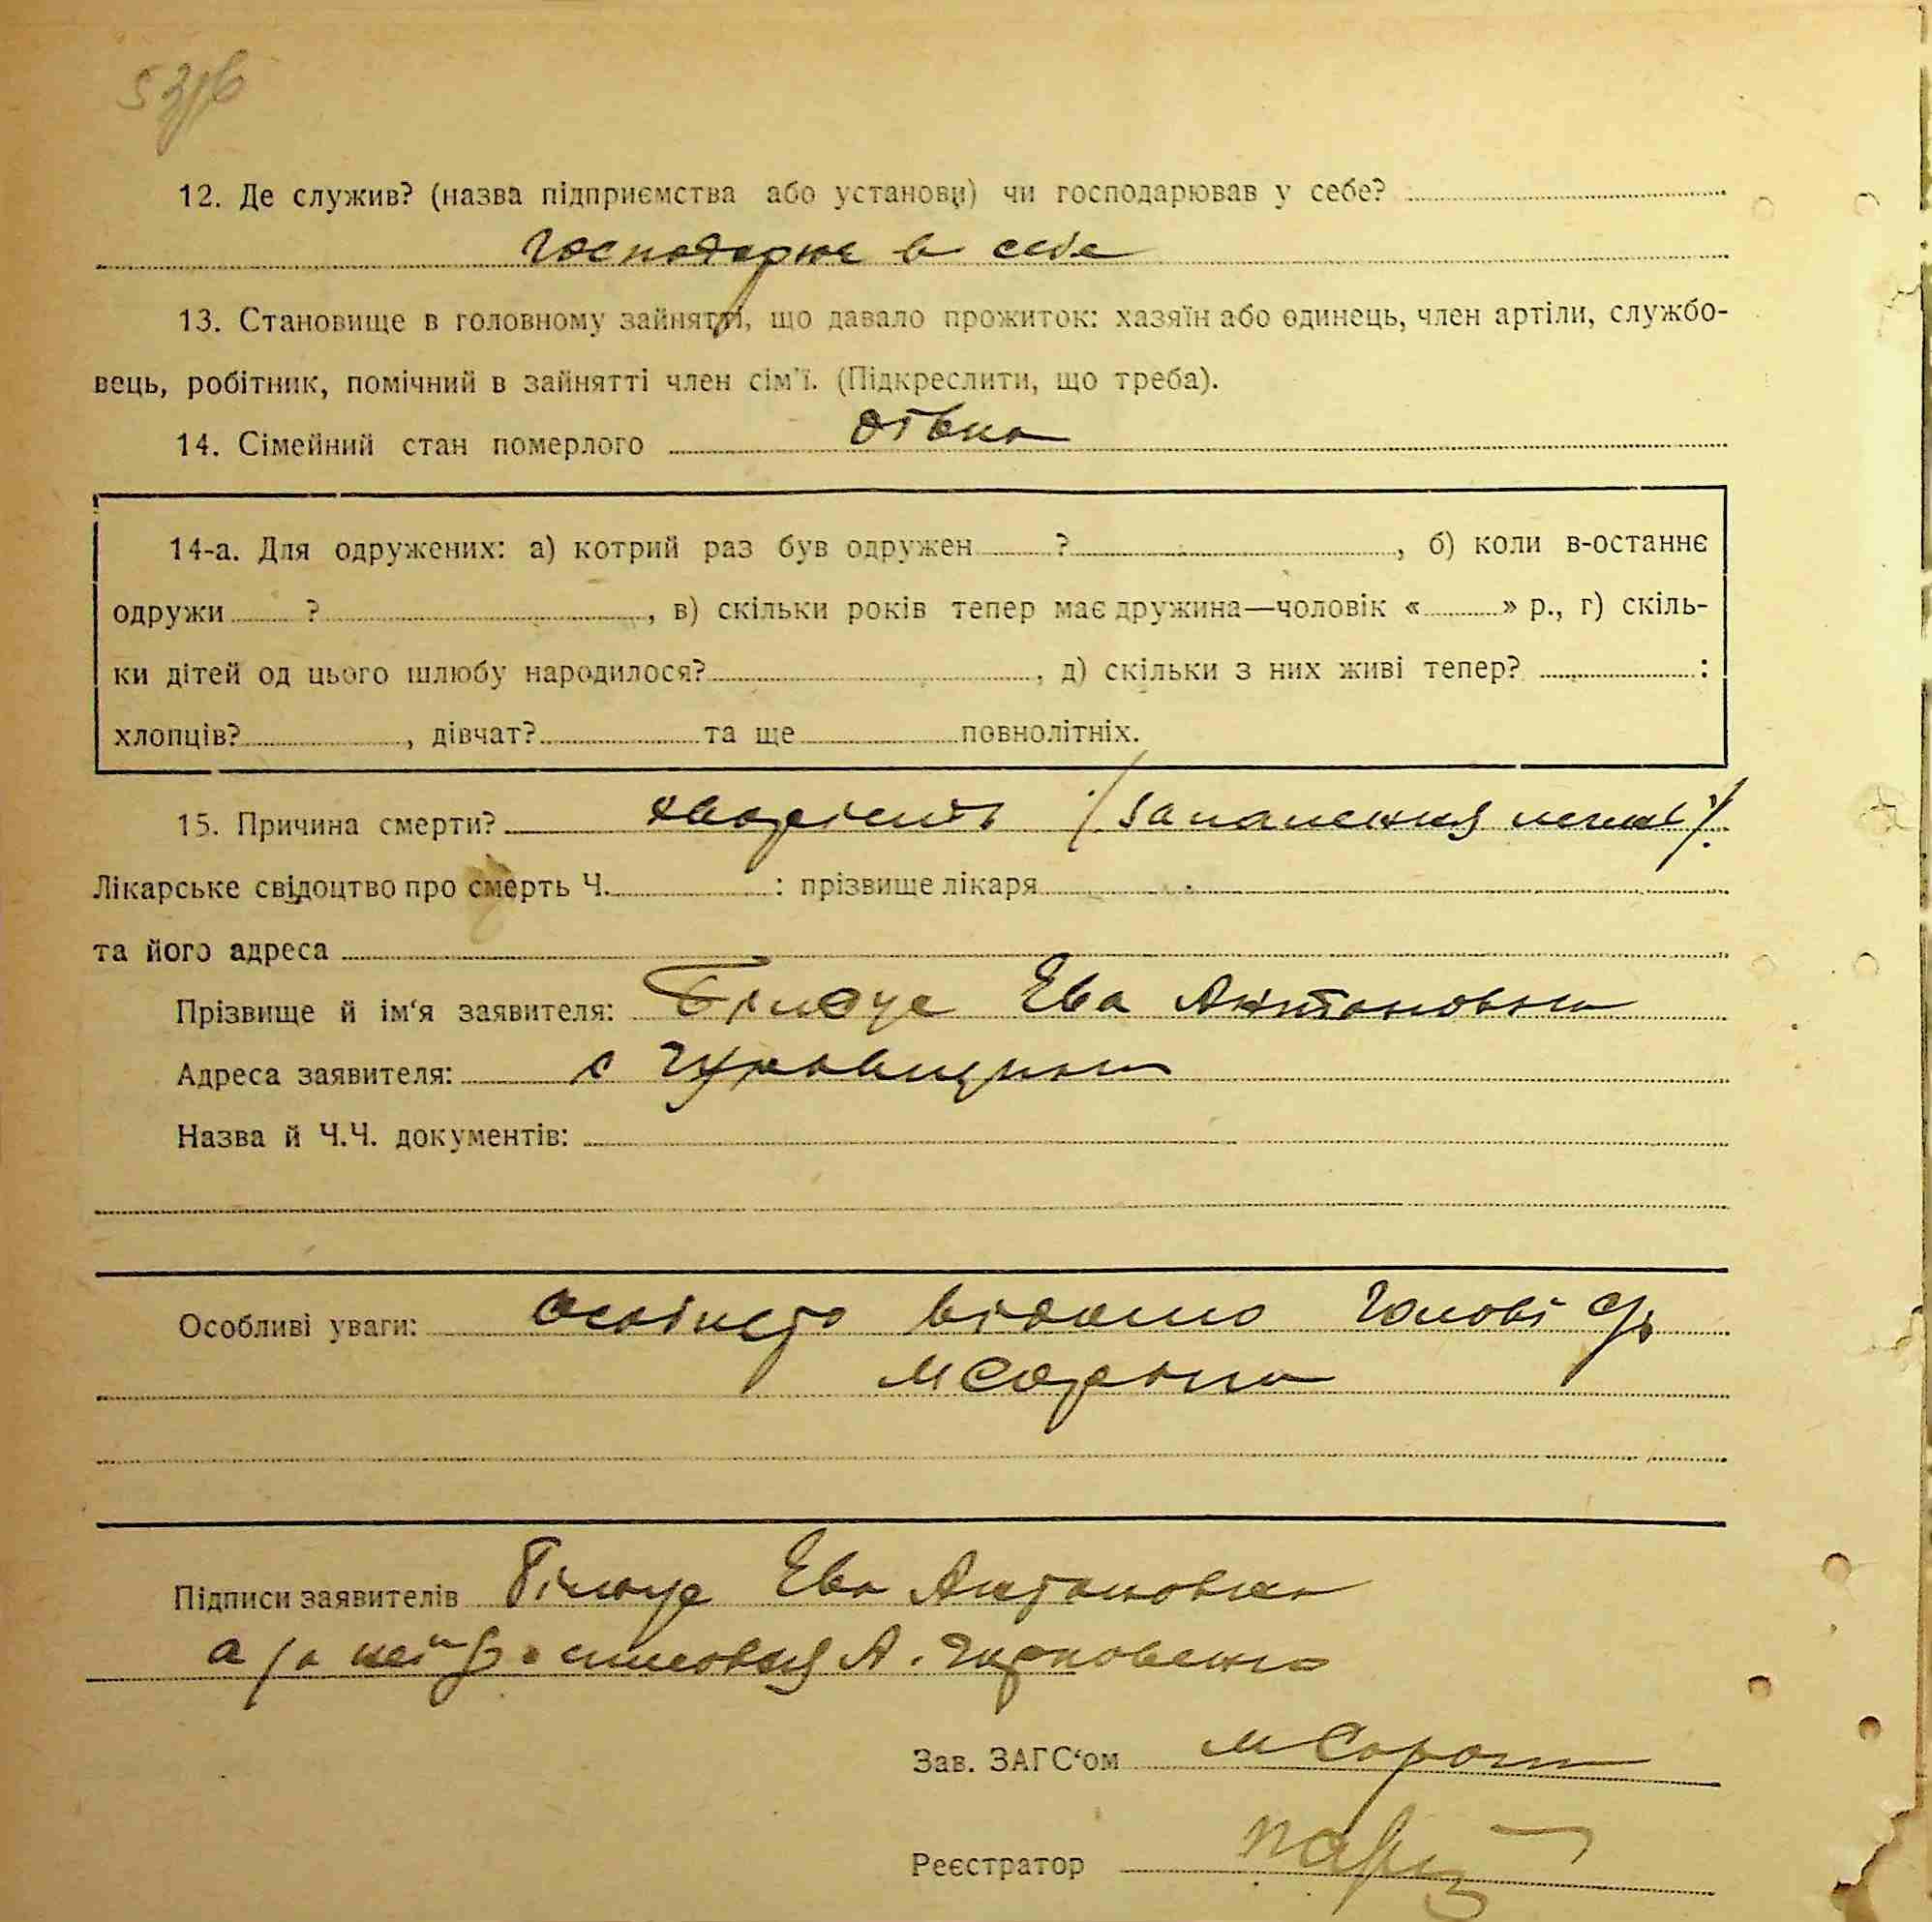 12. Де служив? (назва підприємства або установи) чи господарював у себе?
господарює в себе
13. Становище в головному зайнятті, що давало прожиток: хазяїн або одинець, член артіли, службо-
вець, робітник, помічний в зайнятті член сім'ї. (Підкреслити, що треба).
14. Сімейний стан померлого
14-а. Для одружених: а) котрий раз був одружен ?, б) коли в-останнє
одружи ?, в) скільки років тепер має дружина—чоловік « » р., г) скіль-
ки дітей од цього шлюбу народилося?, д) скільки з них живі тепер? :
хлопців?, дівчат? та ще повнолітніх.
15. Причина смерти? (запалення легенів)
Лікарське свідоцтво про смерть Ч. : прізвище лікаря
та його адреса
Прізвище й ім'я заявителя: Ева Антоновна
Адреса заявителя: с
Назва й Ч.Ч. документів:
Особливі уваги: особисто відомо голові с/р
Підписи заявителів Ева Антоновна
а за неї А.
Зав. ЗАГС'ом
Реєстратор